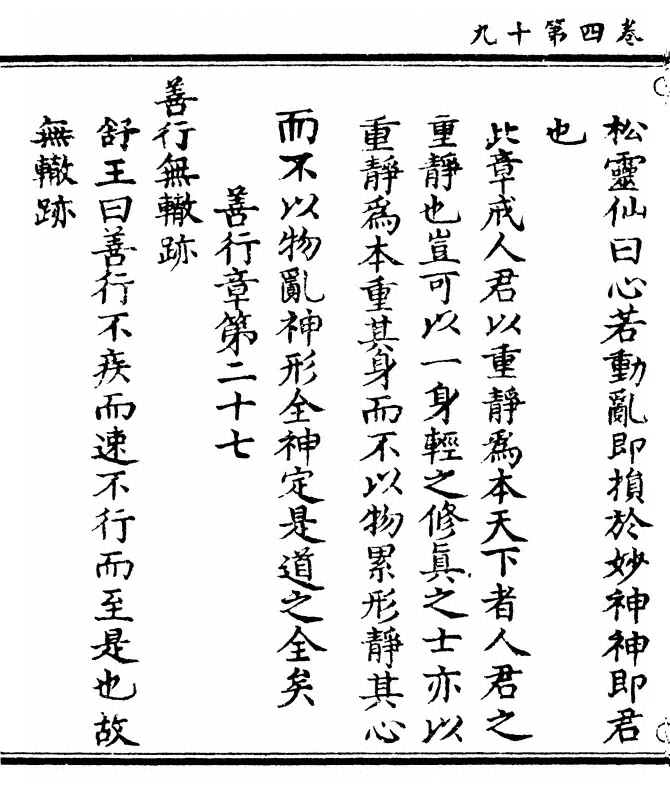 卷四第十九
松靈仙曰心若動亂即損於妙神神即君
也
此章戒人君以重靜爲本天下者人君之
重靜也豈可以一身輕之修眞之士亦以
重靜爲本重其身而不以物累形靜其心
而不以物亂神形全神定是道之全矣
善行章第二十七
善行無轍跡
舒王曰善行不疾而速不行而至是也故
無轍跡